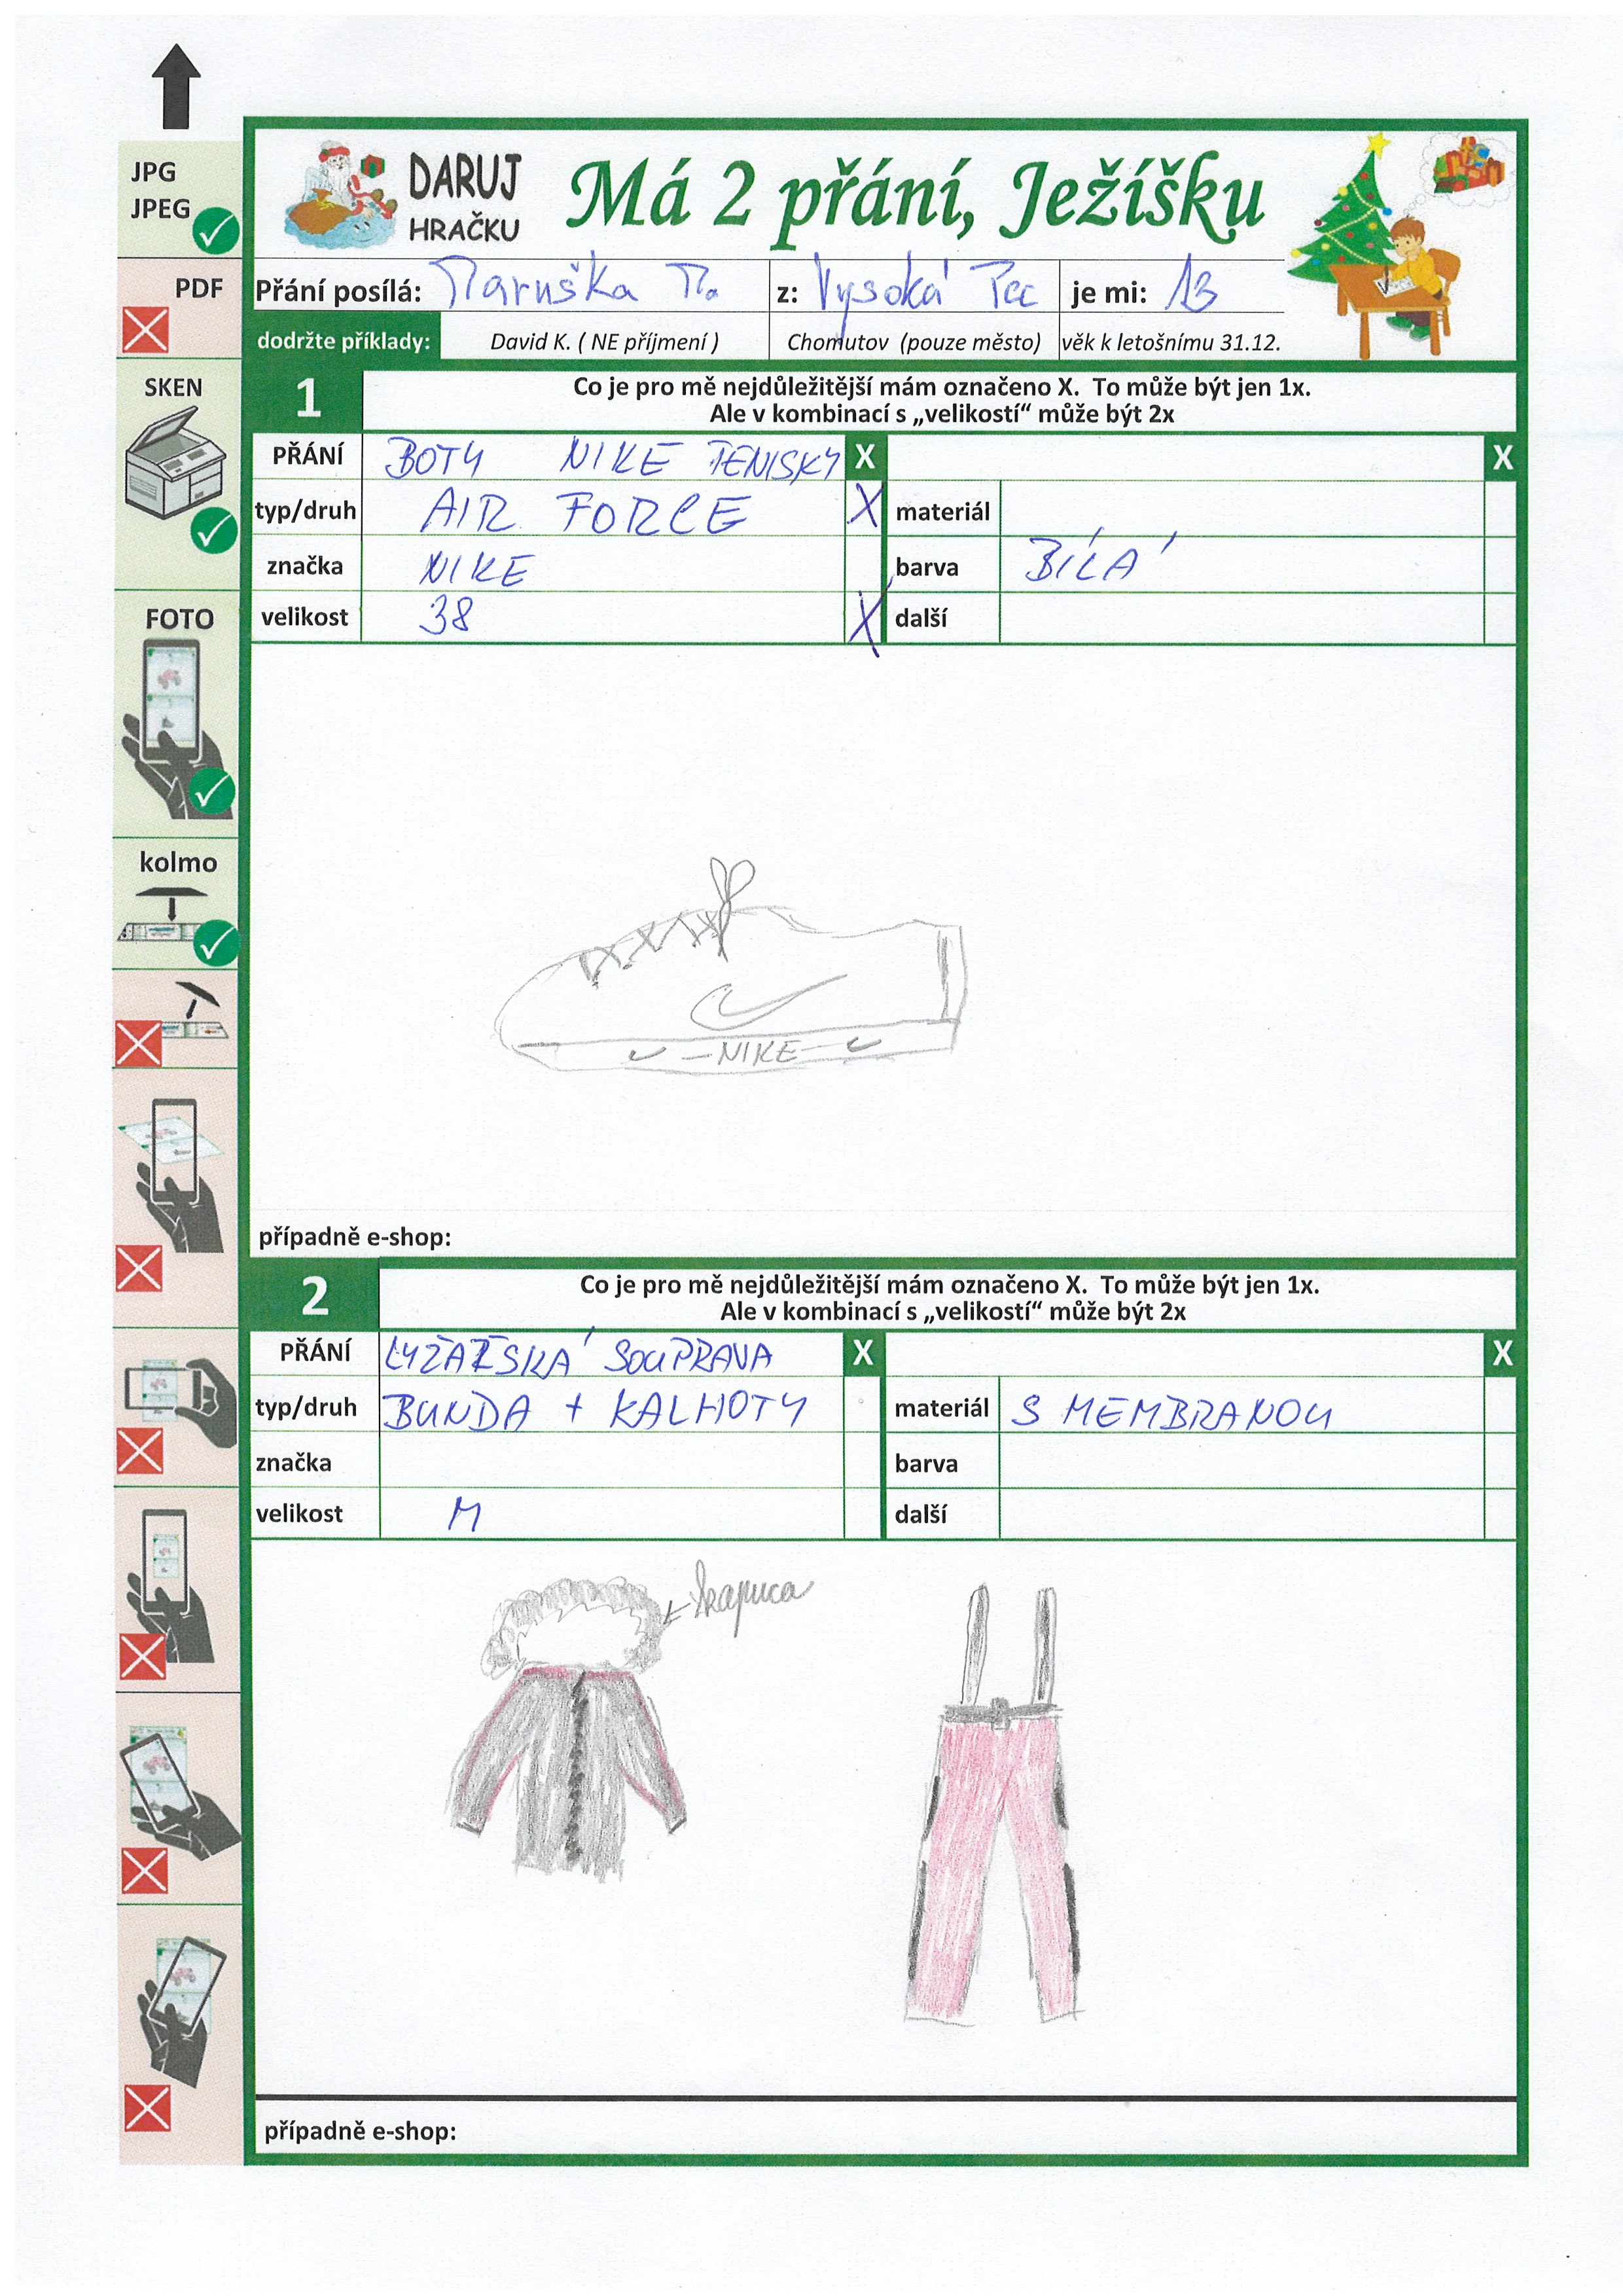 JPG
JPEG
PDF
SKEN
FOTO
kolmo
DARUJ
HRAČKU
Má 2 přání, Ježíšku
Přání posílá: Maruška M. z: Vysoká Pec je mi: 13
dodržte příklady: David K. ( NE příjmení ) Chomutov (pouze město) věk k letošnímu 31.12.
1 Co je pro mě nejdůležitější mám označeno X. To může být jen 1x.
Ale v kombinací s „velikostí“ může být 2x
PŘÁNÍ BOTY NIKE TENISKY X X
typ/druh AIR FORCE X materiál
značka NIKE barva BÍLÁ
velikost 38 X další
NIKE
případně e-shop:
2 Co je pro mě nejdůležitější mám označeno X. To může být jen 1x.
Ale v kombinací s „velikostí“ může být 2x
PŘÁNÍ LYŽAŽSKÁ SOUPRAVA X X
typ/druh BUNDA + KALHOTY materiál S MEMBRANOU
značka barva
velikost M další
kapuca
případně e-shop: